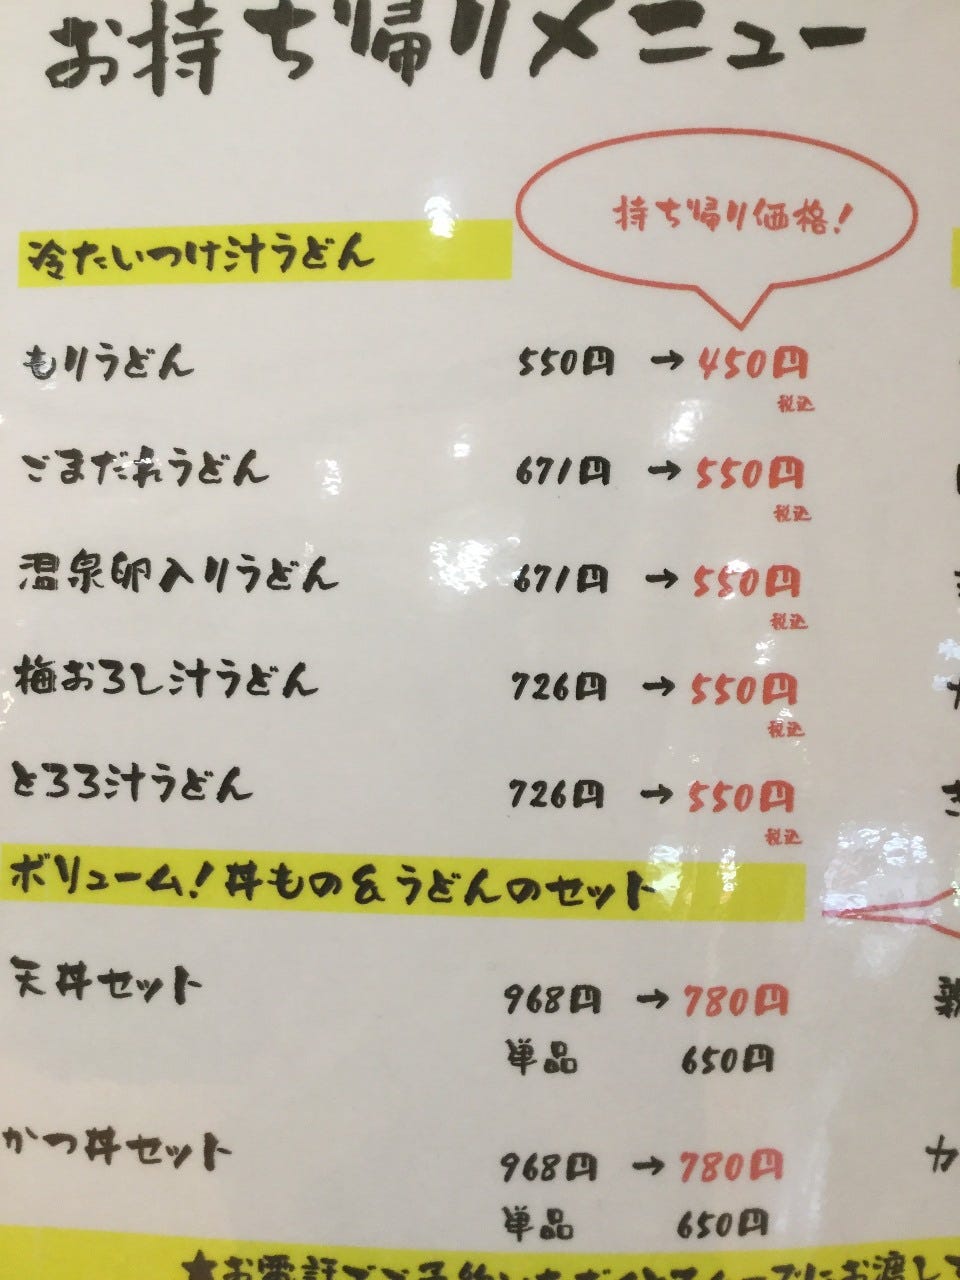 お持ち帰りメニュー
持ち帰り価格!
冷たいつけ汁うどん
もりうどん 550円 → 450円
税込
ごまだれうどん 671円 → 550円
税込
温泉卵入りうどん 671円 → 550円
税込
梅おろし汁うどん 726円 → 550円
税込
とろろ汁うどん 726円 → 550円
税込
ボリューム!丼もの&うどんのセット
天丼セット 968円 → 780円
単品 650円
かつ丼セット 968円 → 780円
単品 650円
★お電話でご予約いただくとスムーズにお渡し